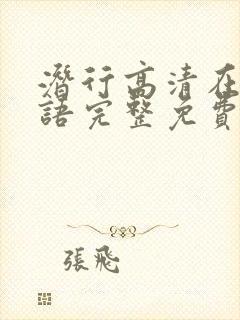 潛行高清在
語完整免費
張飛